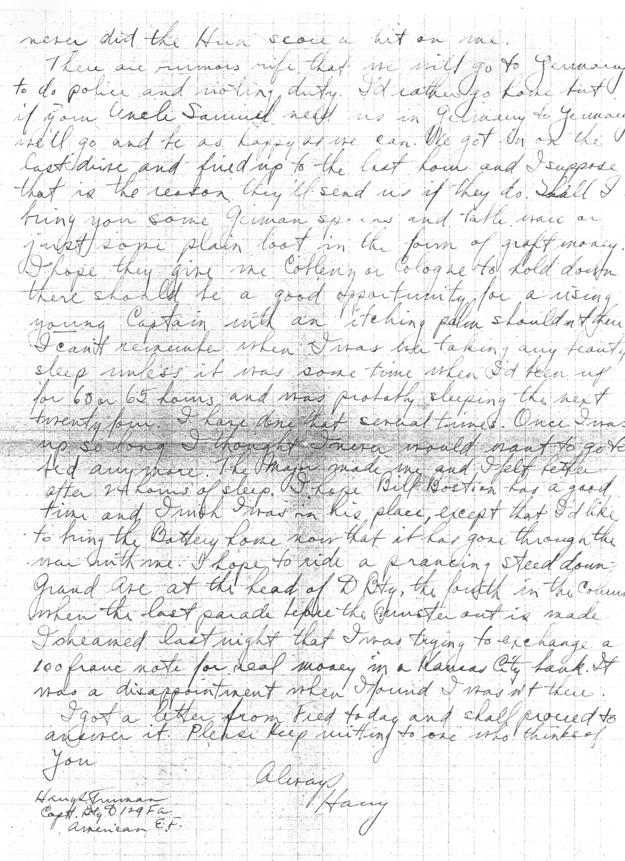 never did the Hun score a hit on me.
There are rumors rife that we will go to Germany
to do police and rioting duty. I'd rather go home but
if your Uncle Samuel need us in Germany to Germany
we'll go and be as happy as we can. We got in on the
last drive and fired up to the last hour and I suppose
that is the reason they'll send us if they do. Shall I
bring you some German spoons and table ware or
just some plain loot in the form of graft money.
I hope they give me Coblenz or Cologne to hold down
there should be a good opportunity for a rising
young Captain with an itching palm shouldn't there
I can't remember when I was ever taking any beauty
sleep unless it was some time when I'd been up
for 60 or 65 hours and was probably sleeping the next
twenty four. I have done that several times. Once I was
up so long I thought I never would want to go to
bed anymore. The Major made me and I felt better
after 24 hours of sleep. I hope Bill Bostian has a good
time and I wish I was in his place, except that I'd like
to bring the Battery home now that it has gone through the
war with me. I hope to ride a prancing steed down
Grand Ave at the head of D Bty, the fourth in the Column
when the last parade before the muster out is made
I dreamed last night that I was trying to exchange a
100 franc note for real money in a Kansas City bank. It
was a disappointment when I found I wasn't there.
I got a letter from Fred today and shall proceed to
answer it. Please keep writing to one who thinks of
You
Always
Harry
Harry S Truman
Capt. Bty D 129 F a
American E.F.